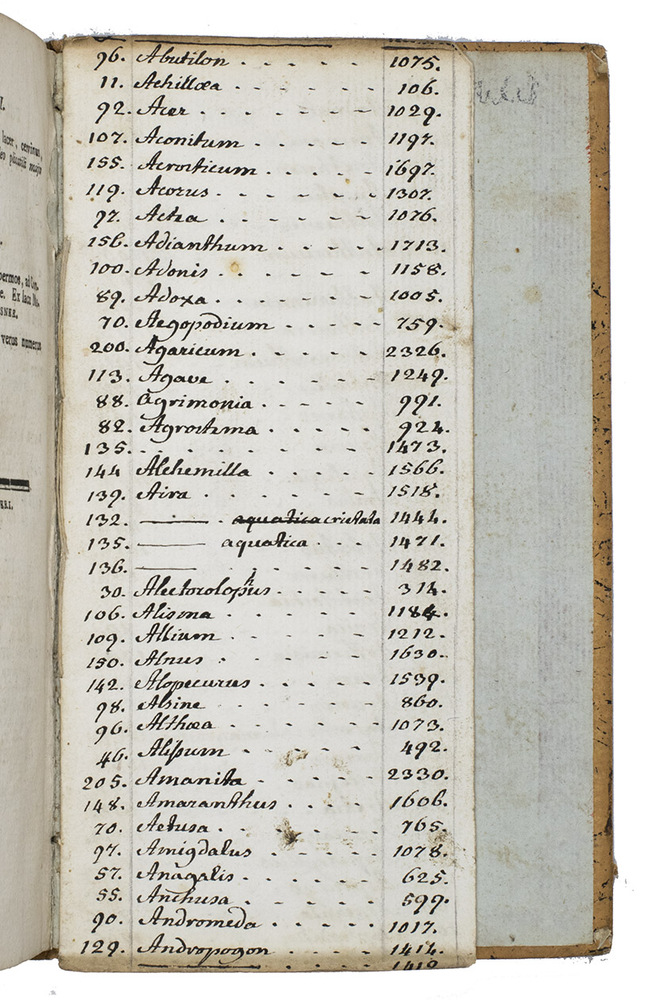 I.
lacer, cervinus,
permos, ad
e. Ex
SNER.
verus numerus
96. Abutilon - - - - - 1075.
11. Achillæa - - - - - 106.
92. Acer - - - - - - 1029.
107. Aconitum - - - - - 1197.
155. Acrosticum - - - - - 1697.
119. Acorus - - - - - - 1307.
97. Actæa - - - - - - 1076.
156. Adianthum - - - - - 1713.
100. Adonis - - - - - - 1158.
89. Adoxa - - - - - - 1005.
70. Aegopodium - - - - - 759.
200. Agaricum - - - - - 2326.
113. Agave - - - - - - 1249.
88. Agrimonia - - - - - 991.
82. Agrostema - - - - - 924.
135. - - - - - - - - 1473.
144 Alchemilla - - - - - 1566.
139. Aira - - - - - - - 1518.
132. —— . aquatica cristata 1444.
135. —— aquatica - - - 1471.
136. —— - - - - - - 1482.
30. Alectorolophus - - - - 314.
106. Alisma - - - - - - 1184.
109. Allium - - - - - - 1212.
150. Alnus - - - - - - 1630.
142. Alopecurus - - - - - 1539.
98. Alsine - - - - - - 860.
96. Althæa - - - - - - 1073.
46. Alissum - - - - - - 492.
205. Amanita - - - - - 2330.
148. Amaranthus - - - - 1606.
70. Aetusa - - - - - - 765.
97. Amigdalus - - - - - 1078.
57. Anagalis - - - - - - 625.
55. Anchusa - - - - - - 599.
90. Andromeda - - - - - 1017.
129. Andropogon - - - - - 1414.